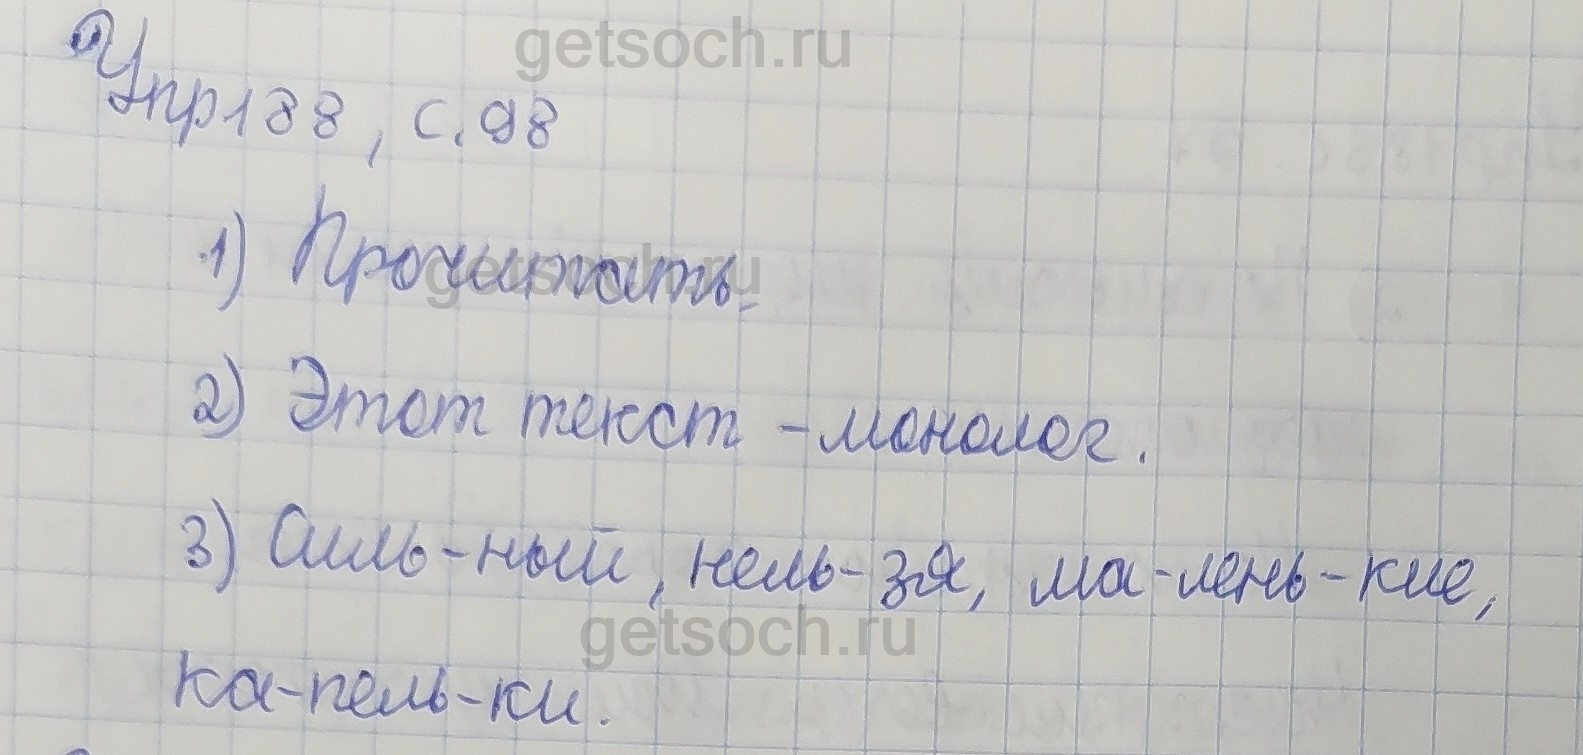 getsoch.ru
Упр188, с.98
1) Прочитать.
getsoch.ru
2) Этот текст - монолог.
3) Силь-ный, нель-зя, ма-лень-кие,
getsoch.ru
ка-пель-ки.